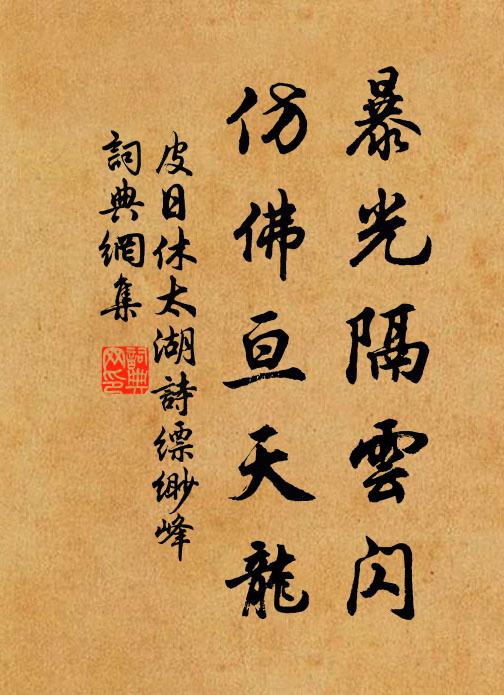 暴光隔雲閃
仿佛亘天龍
皮日休太湖詩縹緲峰
詞典網集
詞典網印